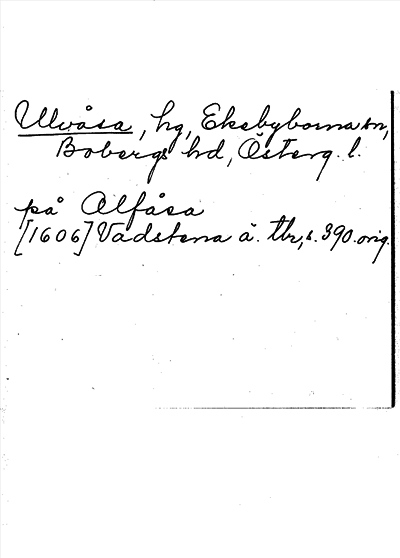 Ulvåsa, hg, Ekebyborna sn,
Bobergs hd, Österg. l.
på Alfåsa
[1606] Vadstena ä. tbr, s. 390. orig.